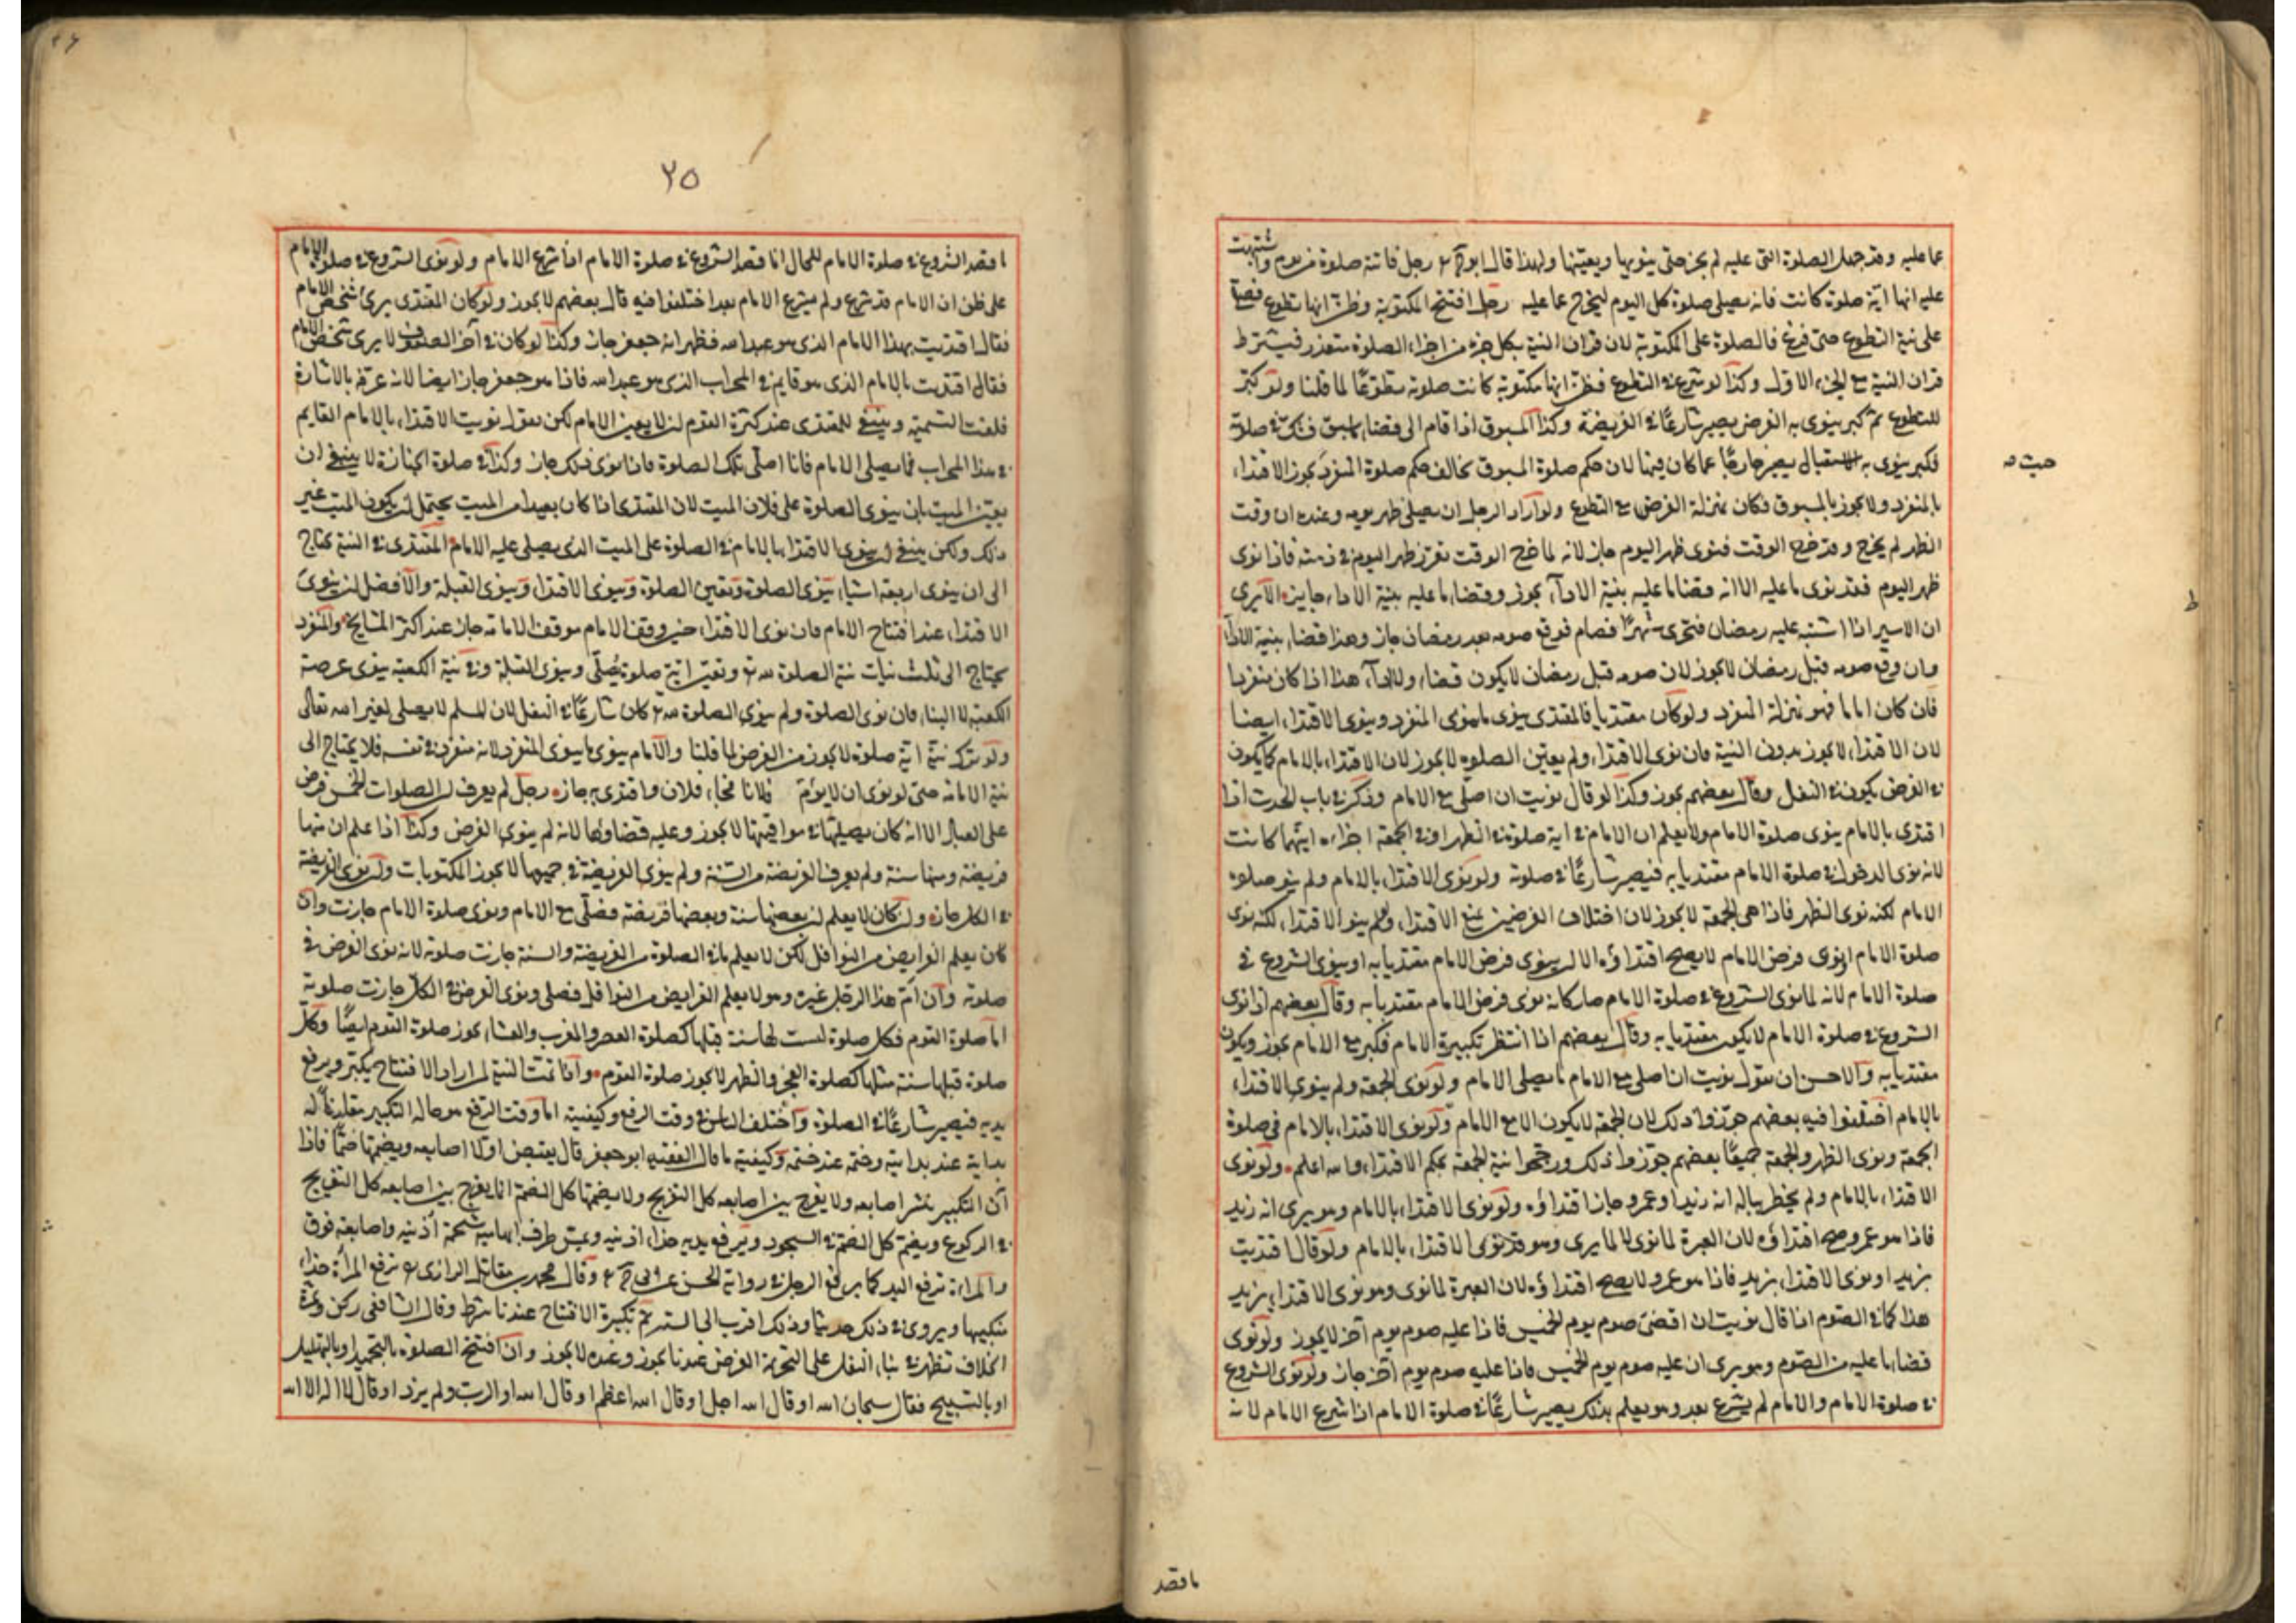 عما عليه وقد جهل الصلوة التى عليه لم يجز حتى ينويها ويعينها ولهذا قال ابو ح رجل فاتته صلوة من يوم واشتبهت
عليه انها اية صلوة كانت فانه يصلى صلوة كل اليوم ليخرج عما عليه رجل افتتح المكتوبة وظن انها تطوع فصلى
على نية التطوع حتى فرغ فالصلوة على المكتوبة لان قران النية بكل جزء من اجزاء الصلوة متعذر فيشترط
قران النية مع الجزء الاول وكذا لو شرع فى التطوع فظن انها مكتوبة كانت صلوته تطوعًا لما قلنا ولو كبر
للتطوع ثم كبر ينوى به الفرض يصير شارعًا فى الفريضة وكذا المسبوق اذا قام الى قضاء ما سبق فشك فى صلوته
فكبر ينوى به الاستقبال يصير خارجًا عما كان فيها لان حكم صلوة المسبوق يخالف حكم صلوة المنفرد يجوز الاقتداء
بالمنفرد ولا يجوز بالمسبوق فكان بمنزلة الفرض مع التطوع ولو اراد الرجل ان يصلى ظهر يومه وعنده ان وقت
الظهر لم يخرج وقد خرج الوقت فنوى ظهر اليوم جاز لانه لما خرج الوقت تقرر ظهر اليوم فى ذمته فاذا نوى
ظهر اليوم فقد نوى ما عليه الا انه قضا ما عليه بنية الاداء يجوز وقضاء ما عليه بنية الاداء جايز الا يرى
ان الاسير اذا اشتبه عليه رمضان فتحرى شهرًا فصام فوقع صومه بعد رمضان جاز وهذا قضاء بنية الاداء
وان وقع صومه قبل رمضان لا يجوز لان صومه قبل رمضان لا يكون قضاء ولا اداء هذا اذا كان منفردا
فان كان اماما فهو بمنزلة المنفرد ولو كان مقتديا فالمقتدى ينوى ما ينوى المنفرد وينوى الاقتداء ايضا
لان الاقتداء لا يجوز بدون النية فان نوى الاقتداء ولم يعين الصلوة لا يجوز لان الاقتداء بالامام كما يكون
فى الفرض يكون فى النفل وقال بعضهم يجوز وكذا لو قال نويت ان اصلى مع الامام وذكر فى باب الحدث اذا
اقتدى بالامام ينوى صلوة الامام ولا يعلم ان الامام فى اية صلوة فى الظهر او فى الجمعة اجزاه ايتهما كانت
لانه نوى الدخول فى صلوة الامام مقتديا به فيصير شارعًا فى صلوته ولو نوى الاقتداء بالامام ولم ينو صلوة
الامام لكنه نوى الظهر فاذا هى الجمعة لا يجوز لان اختلاف الفرضين يمنع الاقتداء ولو لم ينو الاقتداء لكنه نوى
صلوة الامام او نوى فرض الامام لا يصح اقتداؤه الا ان ينوى فرض الامام مقتديا به او ينوى الشروع فى
صلوة الامام لانه لما نوى الشروع فى صلوة الامام صار كانه نوى فرض الامام مقتديا به وقال بعضهم اذا نوى
الشروع فى صلوة الامام لا يكون مقتديا به وقال بعضهم اذا انتظر تكبيرة الامام فكبر مع الامام يجوز ويكون
مقتديا به والاحسن ان يقول نويت ان اصلى مع الامام ما يصلى الامام ولو نوى الجمعة ولم ينوى الاقتداء
بالامام اختلفوا فيه بعضهم جوزوا ذلك لان الجمعة لا يكون الا مع الامام ولو نوى الاقتداء بالامام فى صلوة
الجمعة ونوى الظهر والجمعة جميعًا بعضهم جوزوا ذلك ورجحوا نية الجمعة بحكم الاقتداء والله اعلم ولو نوى
الاقتداء بالامام ولم يخطر بباله انه زيد او عمرو جاز اقتداؤه ولو نوى الاقتداء بالامام وهو يرى انه زيد
فاذا هو عمرو صح اقتداؤه لان العبرة لما نوى لا لما يرى وهو قد نوى الاقتداء بالامام ولو قال اقتديت
بزيد او نوى الاقتداء بزيد فاذا هو عمرو لا يصح اقتداؤه لان العبرة لما نوى وهو نوى الاقتداء بزيد
هذا كما فى الصوم اذا قال نويت ان اقضى صوم يوم الخميس فاذا عليه صوم يوم آخر لا يجوز ولو نوى
قضاء ما عليه من الصوم وهو يرى ان عليه صوم يوم الخميس فاذا عليه صوم يوم آخر جاز ولو نوى الشروع
فى صلوة الامام والامام لم يشرع بعد وهو يعلم بذلك يصير شارعًا فى صلوة الامام اذا شرع الامام لانه
ما قصد
٢٥
ما قصد الشروع فى صلوة الامام للحال انما قصد الشروع فى صلوة الامام اذا شرع الامام ولو نوى الشروع فى صلوة الامام
على ظن ان الامام قد شرع ولم يشرع الامام بعد اختلفوا فيه قال بعضهم لا يجوز ولو كان المقتدى يرى شخص الامام
فقال اقتديت بهذا الامام الذى هو عبد الله فظهر انه جعفر جاز وكذا لو كان فى آخر الصفوف لا يرى شخص الامام
فقال اقتديت بالامام الذى هو قايم فى المحراب الذى هو عبد الله فاذا هو جعفر جاز ايضا لانه عرفه بالاشارة
فلغت التسمية وينبغى للمقتدى عند كثرة القوم ان لا يعين الامام لكن يقول نويت الاقتداء بالامام القايم
فى هذا المحراب فما يصلى الامام فانا اصلى تلك الصلوة فاذا نوى ذلك جاز وكذا فى صلوة الجنازة لا ينبغى ان
يعين الميت بان ينوى الصلوة على فلان الميت لان المقتدى اذا كان بعيدا من الميت يحتمل ان يكون الميت غير
ذلك ولكن ينبغى ان ينوى الاقتداء بالامام فى الصلوة على الميت الذى يصلى عليه الامام المقتدى فى النية يحتاج
الى ان ينوى اربعة اشياء ينوى الصلوة وتعين الصلوة وينوى الاقتداء وينوى القبلة والافضل ان ينوى
الاقتداء عند افتتاح الامام فان نوى الاقتداء حين وقف الامام موقف الامامة جاز عند اكثر المشايخ والمنفرد
يحتاج الى ثلث نيات نية الصلوة لله تع وتعين اية صلوة يصلى وينوى القبلة وفى نية الكعبة ينوى عرصة
الكعبة لا البناء فان نوى الصلوة ولم ينوى الصلوة لله تع كان شارعًا فى النفل لان المسلم لا يصلى لغير الله تعالى
ولو ترك نية اية صلوة لا يجوز من الفرض لما قلنا والامام ينوى ما ينوى المنفرد لانه منفرد فى نفسه فلا يحتاج الى
نية الامامة حتى لو نوى ان لا يؤم فلانا فجاء فلان واقتدى به جاز رجل لم يعرف ان الصلوات الخمس فرض
على العباد الا انه كان يصليها فى مواقيتها لا يجوز وعليه قضاؤها لانه لم ينوى الفرض وكذا اذا علم ان منها
فريضة ومنها سنة ولم يعرف الفريضة من السنة ولم ينوى الفريضة فى جميعها لا يجوز المكتوبات ولو نوى الفريضة
فى الكل جاز وان كان لا يعلم ان بعضها سنة وبعضها فريضة فصلى مع الامام ونوى صلوة الامام جازت وان
كان يعلم الفرايض من النوافل لكن لا يعلم ما فى الصلوة من الفريضة والسنة جازت صلوته لانه نوى الفرض فى
صلوته وان ام هذا الرجل غيره وهو لا يعلم الفرايض من النوافل فصلى ونوى الفرض فى الكل جازت صلوته
اما صلوة القوم فكل صلوة ليست لها سنة قبلها كصلوة العصر والمغرب والعشاء يجوز صلوة القوم ايضًا وكل
صلوة قبلها سنة مثلها كصلوة الفجر والظهر لا يجوز صلوة القوم واذا تمت النية لمن اراد الافتتاح يكبر ويرفع
يديه فيصير شارعًا فى الصلوة واختلف الناس فى وقت الرفع وكيفيته اما وقت الرفع هو حالة التكبير مقارنًا له
بدايته عند بدايته وختمه عند ختمه وكيفيته ما قال الفقيه ابو جعفر قال يقبض اولا اصابعه ويضمها ضمًا فاذا
آن التكبير ينشر اصابعه ولا يفرج بين اصابعه كل التفريج ولا يضمها كل الضم انما يفرج بين اصابعه كل التفريج
فى الركوع ويضم كل الضم فى السجود ويرفع يديه حذاء اذنيه ويمس طرف ابهاميه شحمة اذنيه واصابعه فوق
والمراة ترفع اليد كما يرفع الرجل فى رواية الحسن عن ابى ح وقال محمد بن مقاتل الرازى ترفع المرأة حذاء
منكبيها ويروى فى ذلك حديثا وذلك اقرب الى الستر ثم تكبيرة الافتتاح عندنا شرط وقال الشافعى ركن وثمرة
الخلاف تظهر فى بناء النفل على التحريمة الفرض عندنا يجوز وعنده لا يجوز وان افتتح الصلوة بالتحميد او بالتهليل
او بالتسبيح فقال سبحان الله او قال الله اجل او قال الله اعظم او قال الله او الرب ولم يزد او قال لا اله الا الله